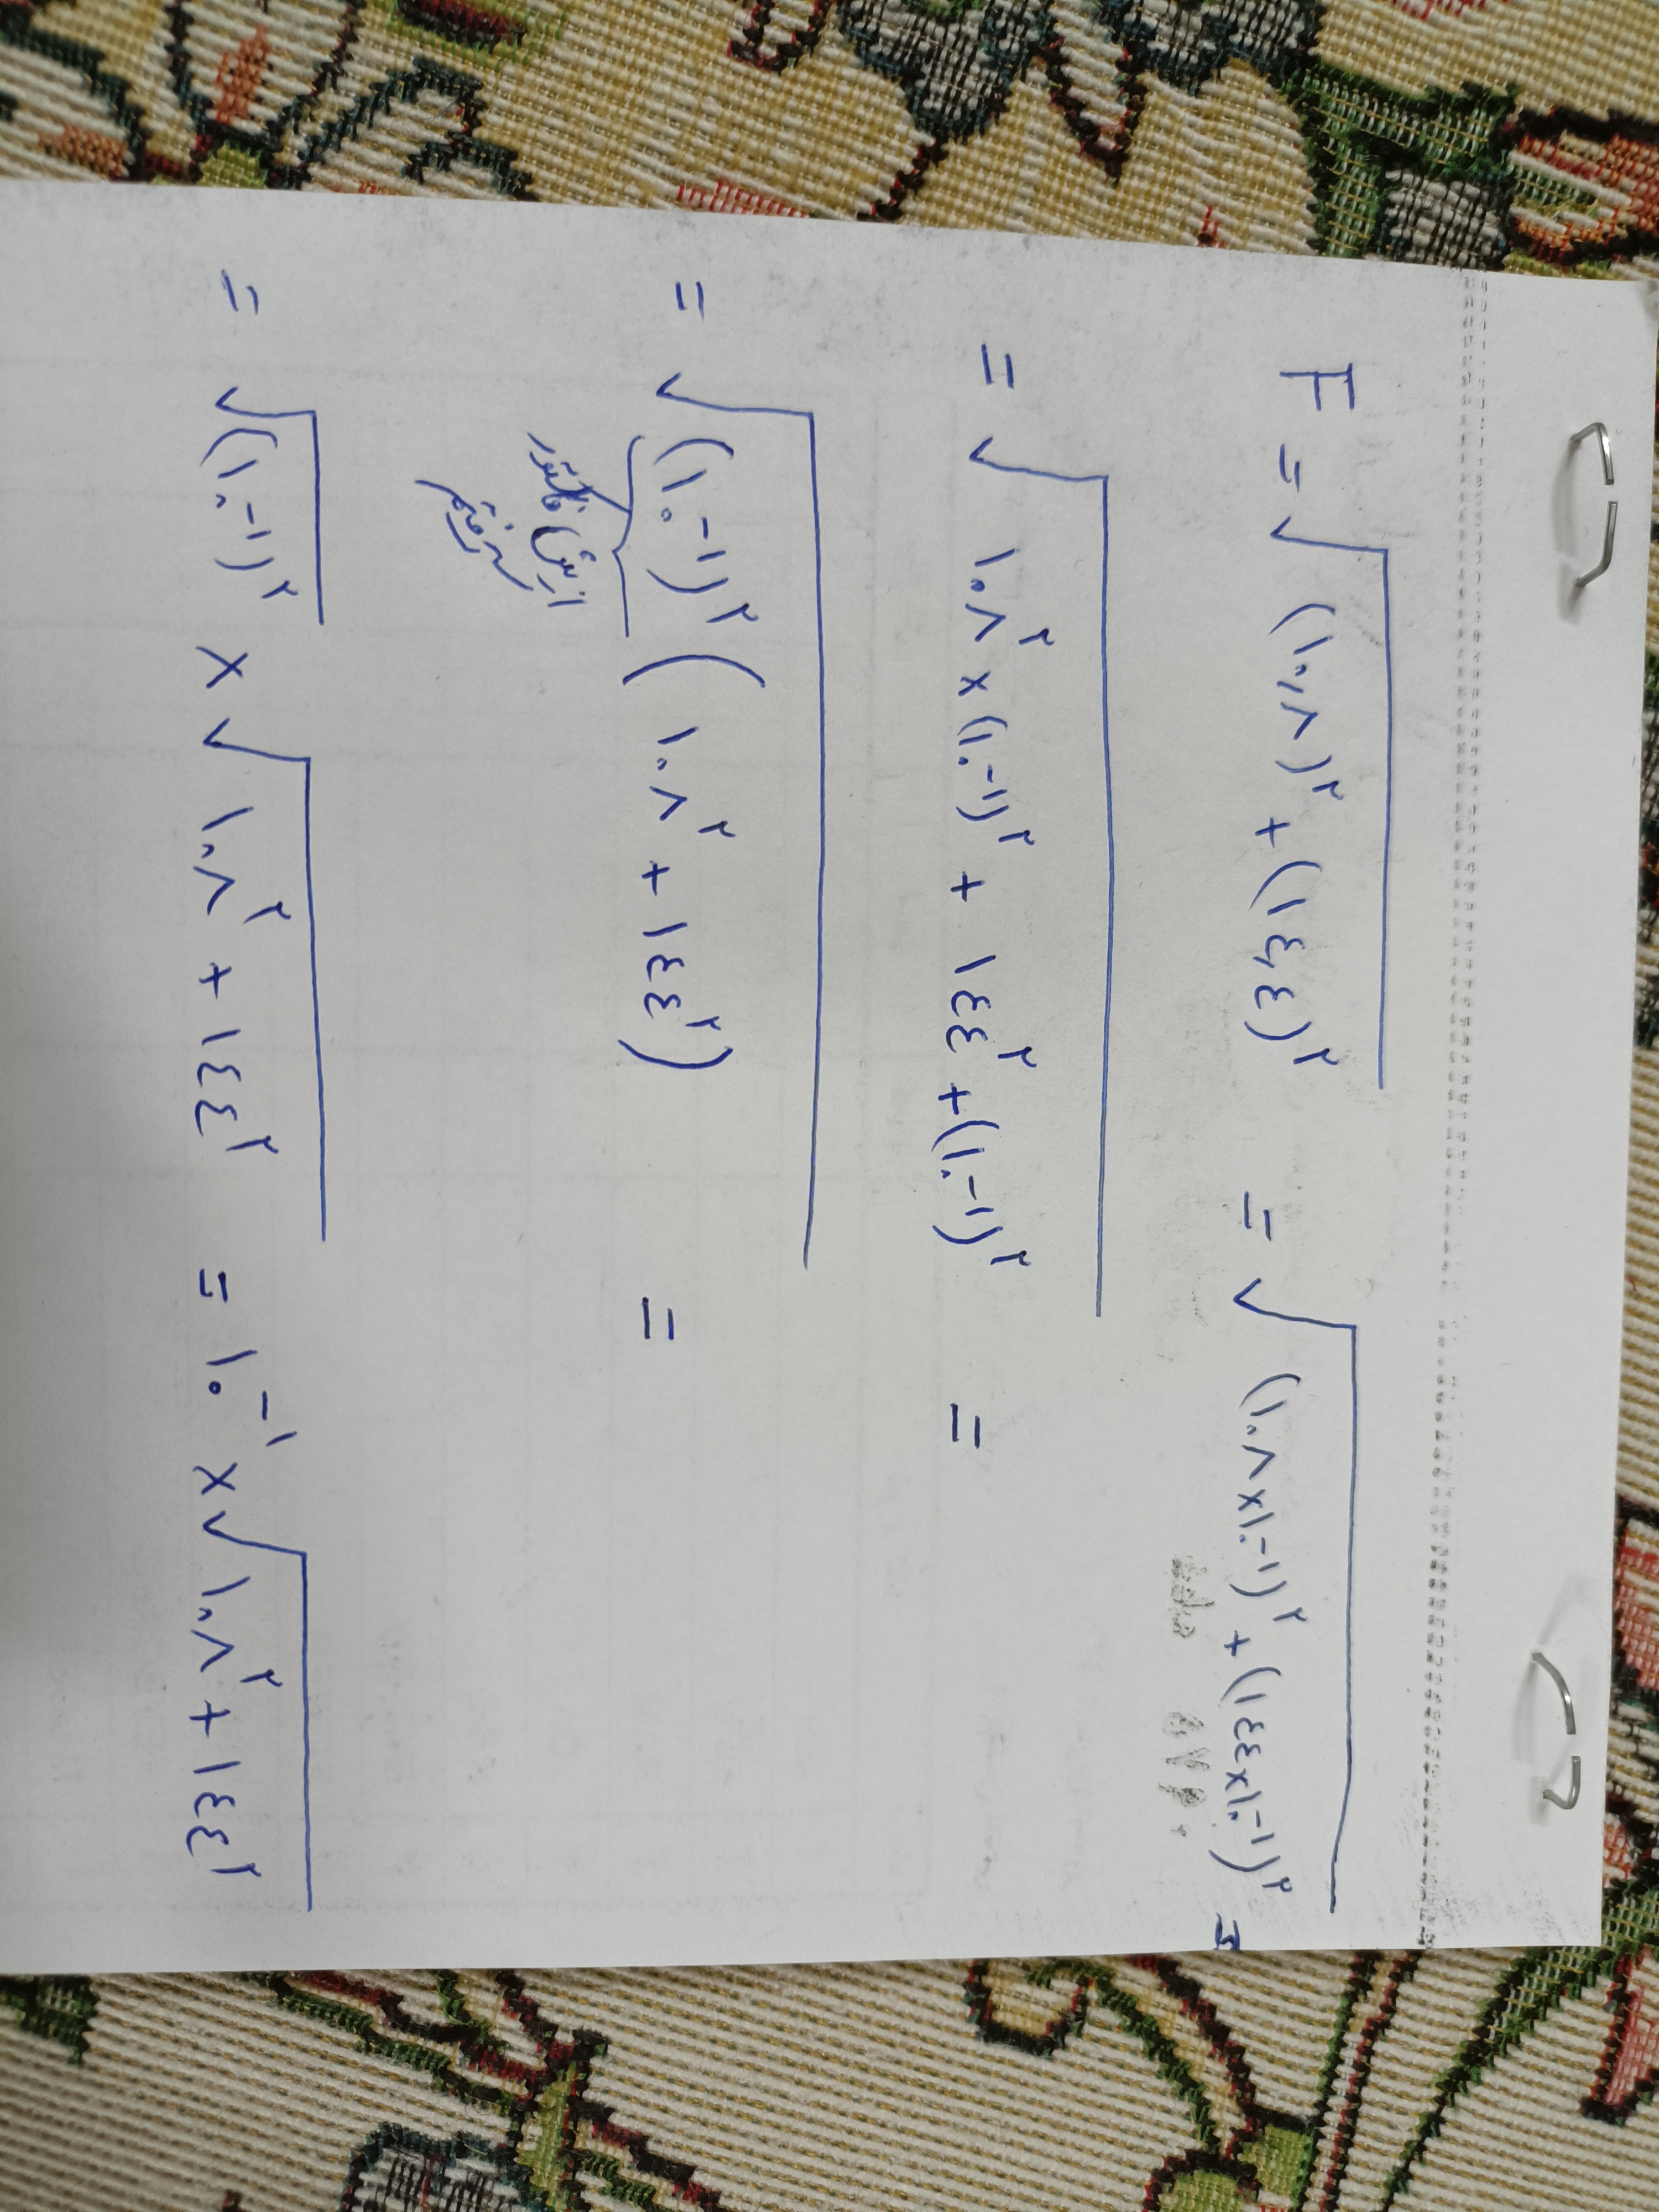 F = √(۱۰,۸)^۲ + (۱٤,٤)^۲ = √(۱۰۸×۱۰^-۱)^۲ + (۱٤٤×۱۰^-۱)^۲ =
= √۱۰۸^۲ × (۱۰^-۱)^۲ + ۱٤٤^۲ + (۱۰^-۱)^۲ =
= √(۱۰^-۱)^۲ (۱۰۸^۲ + ۱٤٤^۲) =
ازش فاکتور
گرفتم
= √(۱۰^-۱)^۲ × √۱۰۸^۲ + ۱٤٤^۲ = ۱۰^-۱ × √۱۰۸^۲ + ۱٤٤^۲